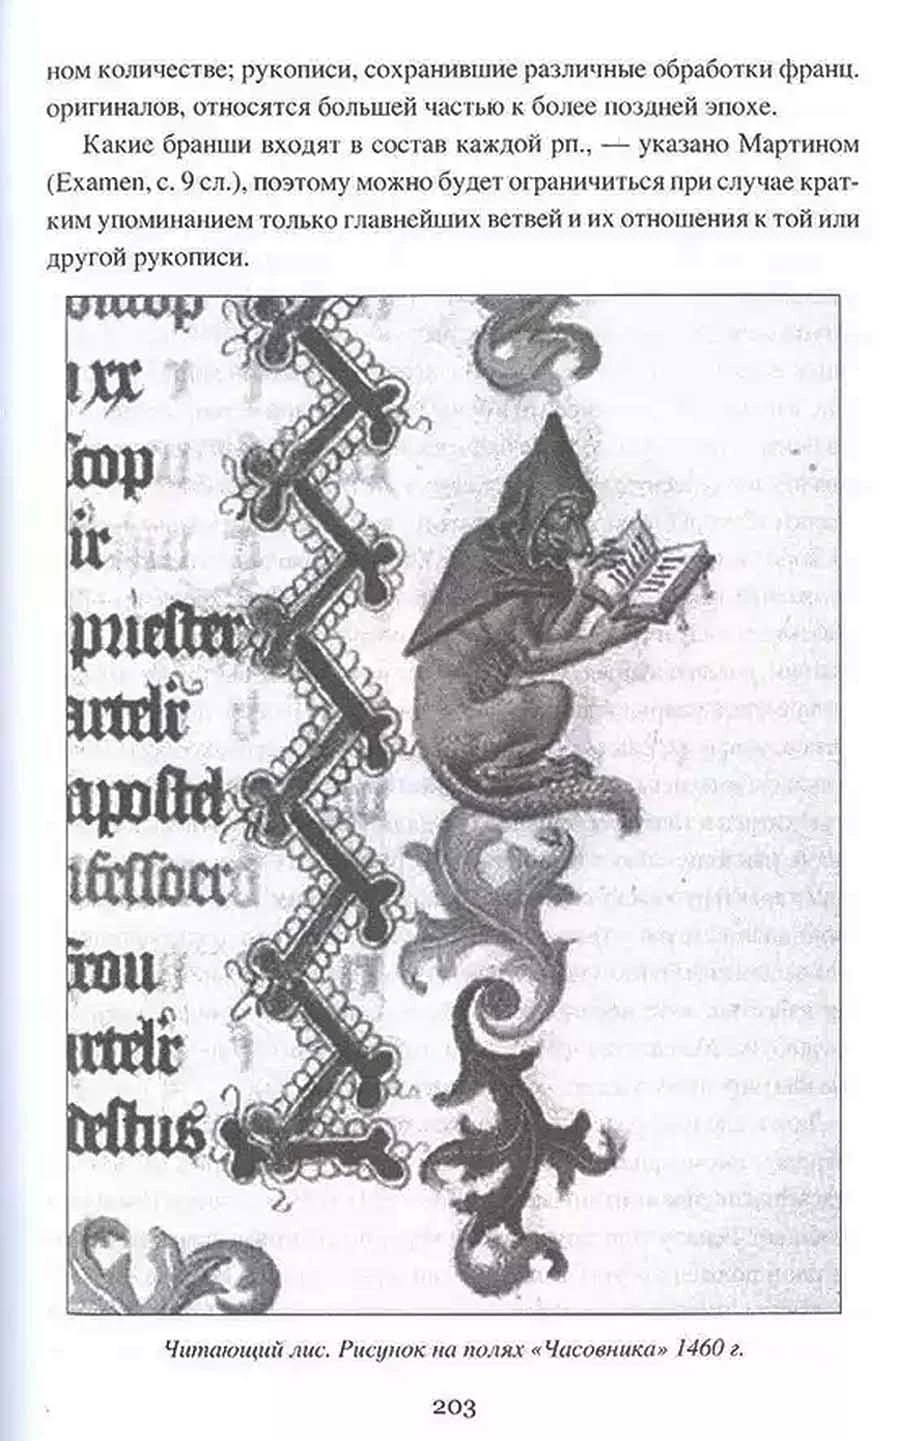 ном количестве; рукописи, сохранившие различные обработки франц.
оригиналов, относятся большей частью к более поздней эпохе.
Какие бранши входят в состав каждой рп., — указано Мартином
(Examen, с. 9 сл.), поэтому можно будет ограничиться при случае крат-
ким упоминанием только главнейших ветвей и их отношения к той или
другой рукописи.
priester
apostel
Читающий лис. Рисунок на полях «Часовника» 1460 г.
203